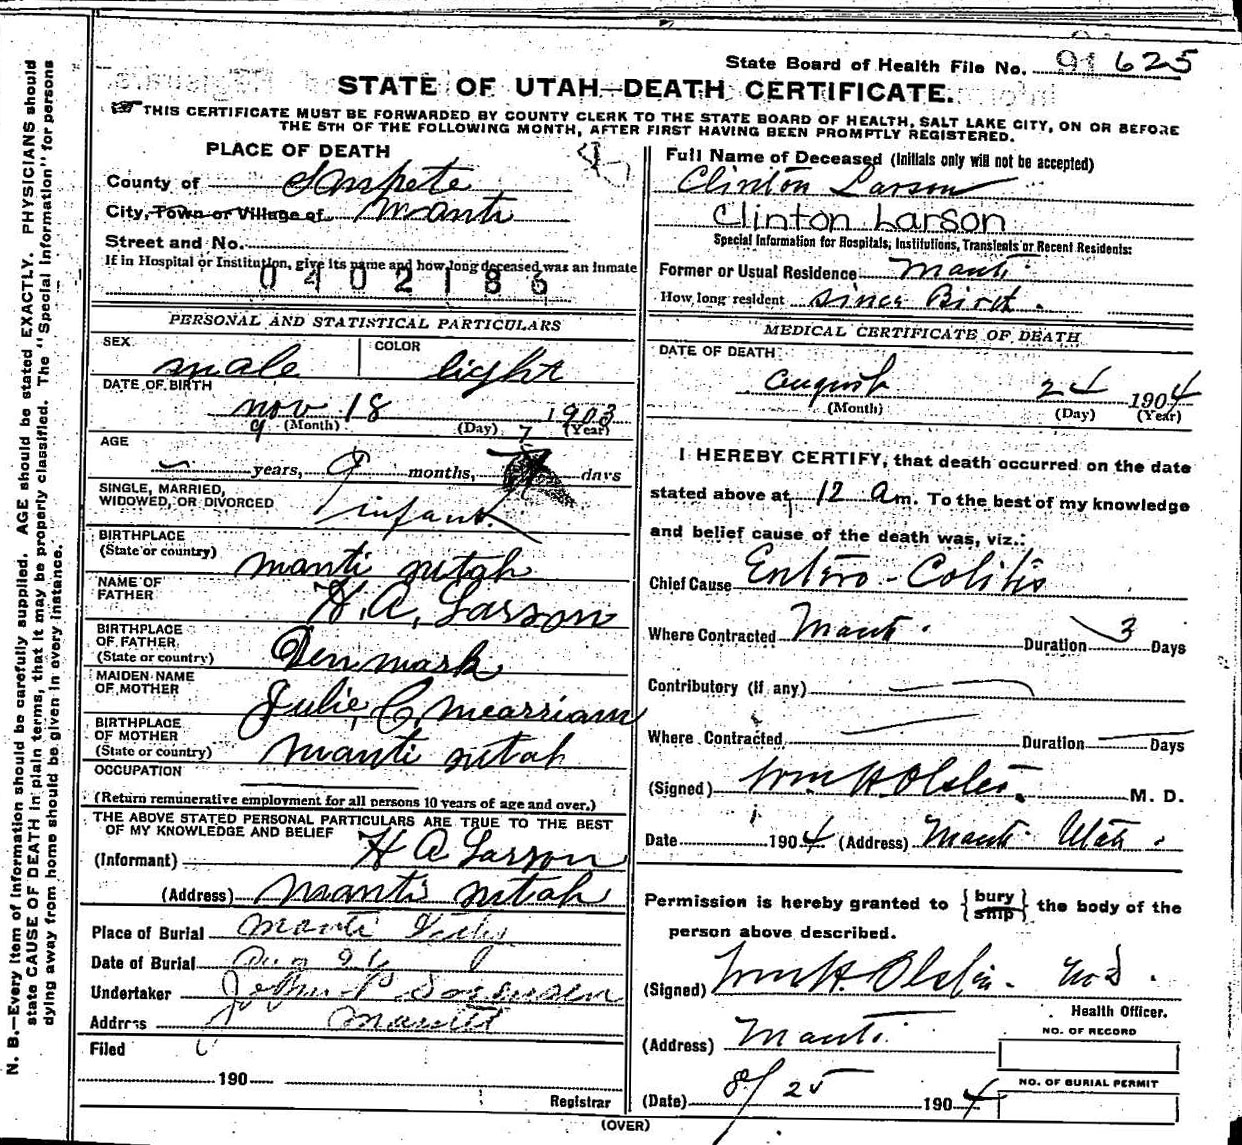 State Board of Health File No. 91 625
STATE OF UTAH—DEATH CERTIFICATE.
THIS CERTIFICATE MUST BE FORWARDED BY COUNTY CLERK TO THE STATE BOARD OF HEALTH, SALT LAKE CITY, ON OR BEFORE
THE 5TH OF THE FOLLOWING MONTH, AFTER FIRST HAVING BEEN PROMPTLY REGISTERED.
PLACE OF DEATH
County of Sanpete
City, Town or Village of Manti
Street and No.
If in Hospital or Institution, give its name and how long deceased was an inmate
0402186
PERSONAL AND STATISTICAL PARTICULARS
SEX male COLOR light
DATE OF BIRTH
Nov 18 1903
(Month) (Day) (Year)
9 7
AGE
years, 9 months, days
SINGLE, MARRIED,
WIDOWED, OR DIVORCED infant
BIRTHPLACE
(State or country) Manti Utah
NAME OF
FATHER H. A. Larson
BIRTHPLACE
OF FATHER
(State or country) Denmark
MAIDEN NAME
OF MOTHER Julie C. Mearriam
BIRTHPLACE
OF MOTHER
(State or country) Manti Utah
OCCUPATION
(Return remunerative employment for all persons 10 years of age and over.)
THE ABOVE STATED PERSONAL PARTICULARS ARE TRUE TO THE BEST
OF MY KNOWLEDGE AND BELIEF
(Informant) H A Larson
(Address) Manti Utah
Place of Burial Manti
Date of Burial Aug 26
Undertaker John P Sorensen
Address Manti
Filed
190
Registrar
Full Name of Deceased (Initials only will not be accepted)
Clinton Larson
Clinton Larson
Special Information for Hospitals, Institutions, Transients or Recent Residents:
Former or Usual Residence Manti
How long resident since Birth.
MEDICAL CERTIFICATE OF DEATH
DATE OF DEATH
August 24 1904
(Month) (Day) (Year)
I HEREBY CERTIFY, that death occurred on the date
stated above at 12 a m. To the best of my knowledge
and belief cause of the death was, viz.:
Chief Cause Entero-Colitis
Where Contracted Manti. Duration 3 Days
Contributory (if any)
Where Contracted Duration Days
(Signed) Wm H Olsten. M. D.
Date 1904 (Address) Manti Utah.
Permission is hereby granted to {bury ship} the body of the
person above described.
(Signed) Wm H. Olsten. M D.
Health Officer.
(Address) Manti.
NO. OF RECORD
NO. OF BURIAL PERMIT
(Date) 8/25 1904
(OVER)
N. B.—Every item of information should be carefully supplied. AGE should be stated EXACTLY. PHYSICIANS should
state CAUSE OF DEATH in plain terms, that it may be properly classified. The "Special Information" for persons
dying away from home should be given in every instance.